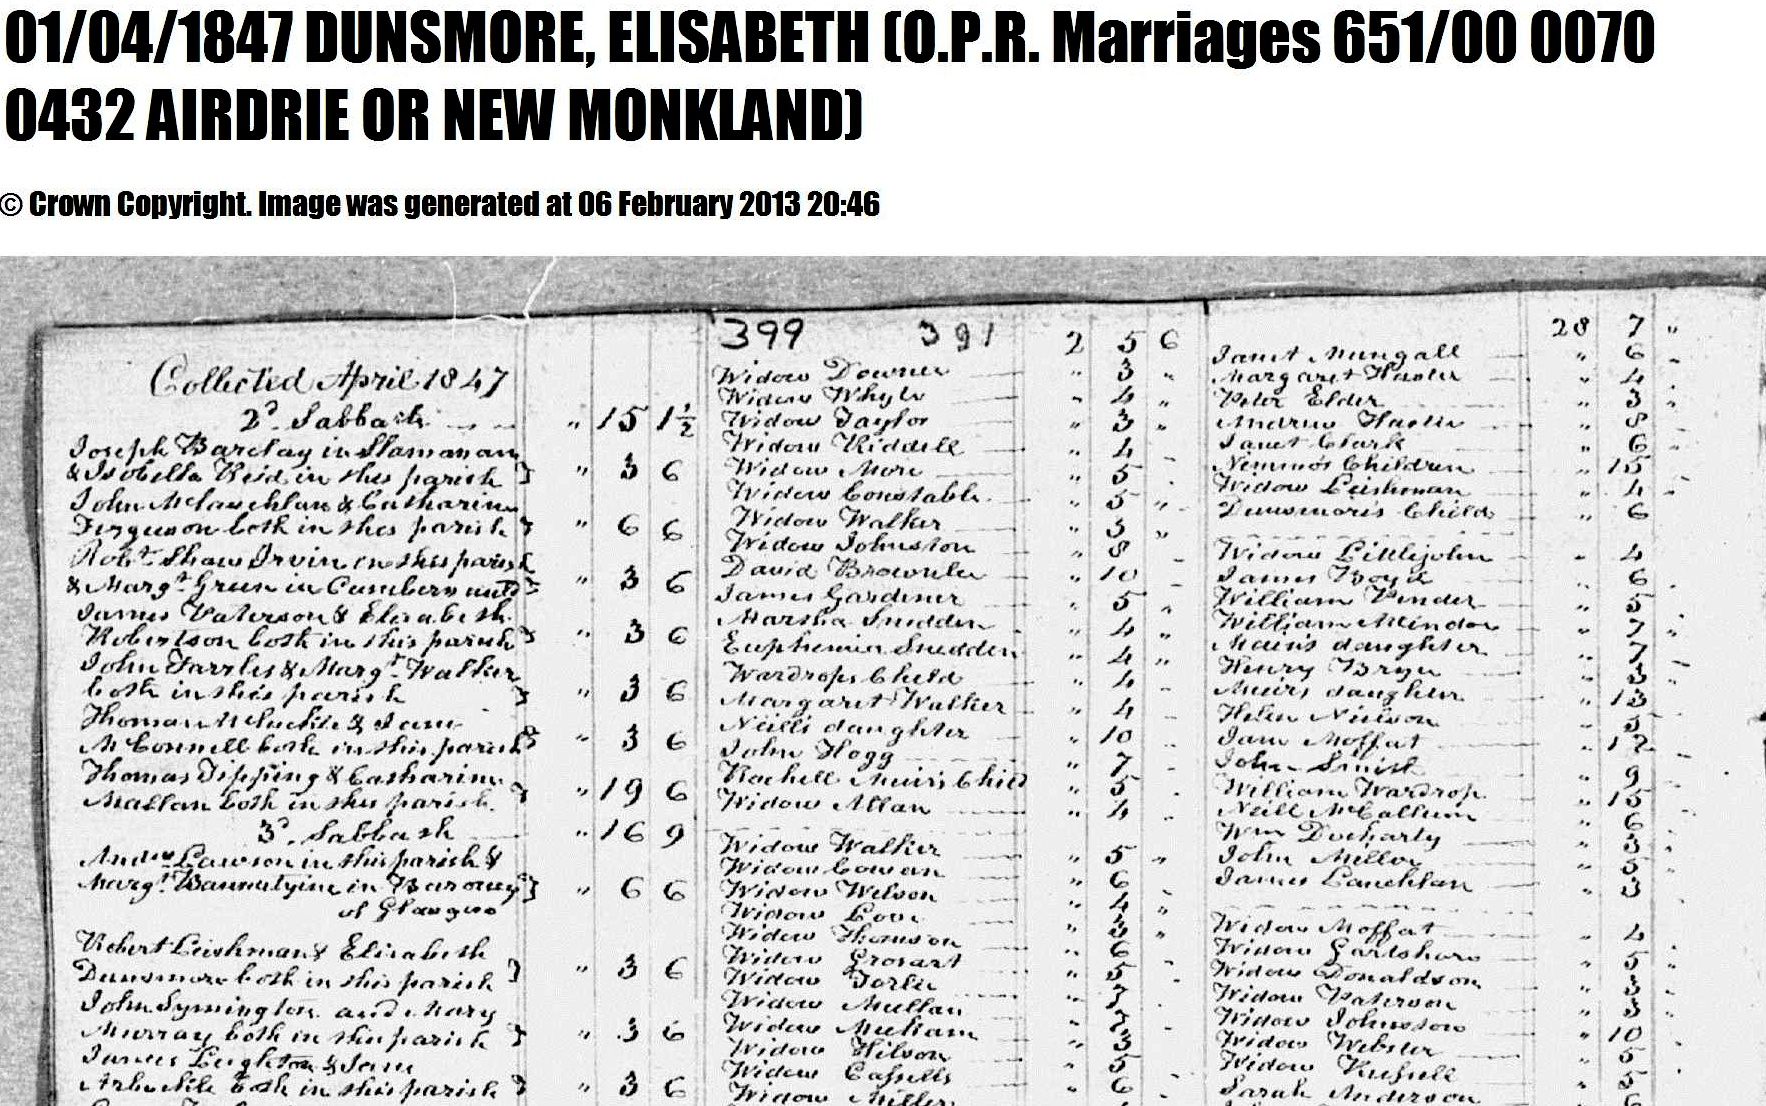 01/04/1847 DUNSMORE, ELISABETH (O.P.R. Marriages 651/00 0070
0432 AIRDRIE OR NEW MONKLAND)
© Crown Copyright. Image was generated at 06 February 2013 20:46
399 391
Collected April 1847
2d. Sabbath " 15 1½
Joseph Barclay in Slamanan
& Isobella Reid in this parish } " 3 6
John McLauchlan & Catharine
Ferguson both in this parish } " 6 6
Robt. Shaw Irvin in this parish
& Margt. Green in Cumbernauld } " 3 6
James Paterson & Elisabeth
Robertson both in this parish } " 3 6
John & Margt. Walker
both in this parish } " 3 6
Thomas & Jane
McConnell both in this parish } " 3 6
Thomas Tipping & Catharine
Mallan both in this parish } " 19 6
3d. Sabbath " 16 9
Andw. Lawson in this parish &
Margt. Bannatyine in Barony } " 6 6
of Glasgow
Robert Leishman & Elisabeth
Dunsmore both in this parish } " 3 6
John Symington and Mary
Murray both in this parish } " 3 6
James Leighton & Jane
Arbuckle both in this parish } " 3 6
2 5 6
Widow Downie " 3 "
Widow Whyte " 4 "
Widow Taylor " 3 "
Widow Riddell " 4 -
Widow More " 5 -
Widow Constable " 5 "
Widow Walker " 3 "
Widow Johnston " 8 -
David Brownlee " 10 -
James Gardiner " 5 "
Martha Snedden " 4 "
Euphemia Snedden " 4 "
Wardrops Child " 4 -
Margaret Walker " 4 -
Neills daughter " 10 -
John Hogg " 7 -
Rachell Muirs Child " 5 -
Widow Allan " 4 -
Widow Walker " 5 "
Widow Cowan " 6 -
Widow Wilson " 4 "
Widow Love " 3 "
Widow Thomson " 6 -
Widow Grosart " 5 -
Widow
Widow Mullan
Widow
Widow Wilson
Widow Cassells
Widow Miller
28 7 "
Janet Mungall " 6 -
Margaret Hunter " 4 -
Peter Elder " 3 -
Andrew " 8
Janet Clark " 6
Nimmos Children " 15
Widow Leishman " 4
Dunsmoris Child " 6
Widow Littlejohn " 4
James Boyd " 6
William Pender " 5
William " 7
daughter " 7
Henry " 3
Muirs daughter " 13
Helen " 5
Jane Moffat " 12
John " 9
William Wardrop " 15
Neill McCallum " 6
Wm Docharty " 3
John Miller " 5
James Lauchlan " 3
Widow Moffat " 4
Widow Gartshore " 5
Widow Donaldson " 3
Widow Paterson " 3
Widow Johnston " 10
Widow Webster " 5
Widow Russell " 5
Sarah Anderson " 6